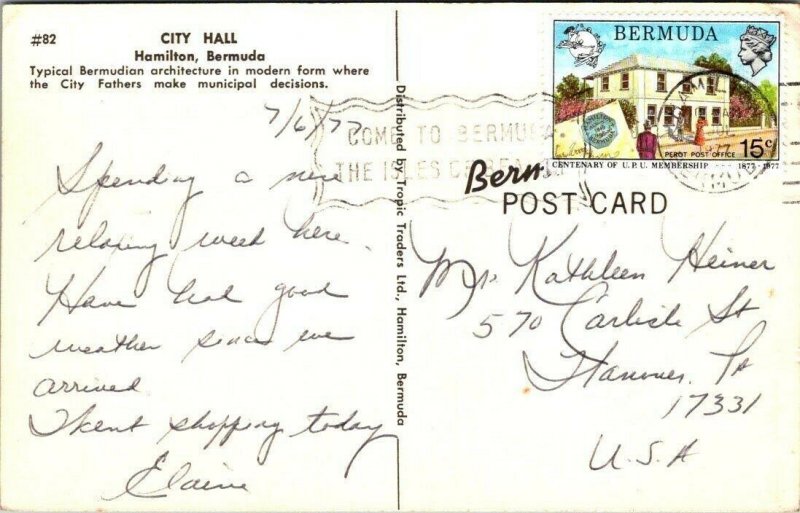 #82
CITY HALL
Hamilton, Bermuda
Typical Bermudian architecture in modern form where
the City Fathers make municipal decisions.
7/6/77
Spending a nice
relaxing week here.
Have had good
weather since we
arrived
Went shopping today
Elaine
Distributed by Tropic Traders Ltd., Hamilton, Bermuda
COME TO BERMUDA
THE ISLES
BERMUDA
PEROT POST OFFICE
15c
CENTENARY OF U.P.U. MEMBERSHIP 1877-1977
Berm
POST CARD
Mrs Kathleen Heiner
570 Carlisle St
Hanover, Pa
17331
U.S.A